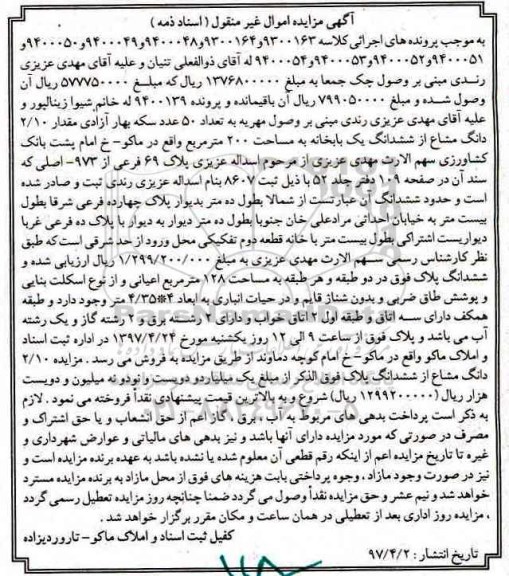 آگهی مزایده اموال غیر منقول ( اسناد ذمه )
به موجب پرونده های اجرائی کلاسه ۹۳۰۰۱۶۳و۹۳۰۰۱۶۴و۹۴۰۰۰۴۸و۹۴۰۰۰۴۹و۹۴۰۰۰۵۰و
۹۴۰۰۰۵۱و۹۴۰۰۰۵۲و۹۴۰۰۰۵۳و۹۴۰۰۰۵۴ له آقای ذوالفعلی تتیان و علیه آقای مهدی عزیزی
رندی مبنی بر وصول چک جمعا به مبلغ ۱۳۷۶۸۰۰۰۰۰ ریال که مبلغ ۵۷۷۷۵۰۰۰۰ ریال آن
وصول شده و مبلغ ۷۹۹۰۵۰۰۰۰ ریال آن باقیمانده و پرونده ۹۴۰۰۱۳۹ له خانم شیوا زینالپور و
علیه آقای مهدی عزیزی رندی مبنی بر وصول مهریه به تعداد ۵۰ عدد سکه بهار آزادی مقدار ۲/۱۰
دانگ مشاع از ششدانگ یک بابخانه به مساحت ۲۰۰ مترمربع واقع در ماکو- خ امام پشت بانک
کشاورزی سهم الارث مهدی عزیزی از مرحوم اسداله عزیزی پلاک ۶۹ فرعی از ۹۷۳- اصلی که
سند آن در صفحه ۱۰۹ دفتر جلد ۵۲ با ذیل ثبت ۸۶۰۷ بنام اسداله عزیزی رندی ثبت و صادر شده
است و حدود ششدانگ آن عبارتست از شمالا بطول ده متر بدیوار پلاک چهارده فرعی شرقا بطول
بیست متر به خیابان احداثی مرادعلی خان جنوبا بطول ده متر دیوار به دیوار با پلاک ده فرعی غربا
دیواریست اشتراکی بطول بیست متر با خانه قطعه دوم تفکیکی محل ورود از حد شرقی است که طبق
نظر کارشناس رسمی سهم الارث مهدی عزیزی به مبلغ ۱/۲۹۹/۲۰۰/۰۰۰ ریال ارزیابی شده و
ششدانگ پلاک فوق در دو طبقه و هر طبقه به مساحت ۱۲۸ مترمربع اعیانی و از نوع اسکلت بنایی
و پوشش طاق ضربی و بدون شناژ قایم و در حیاط انباری به ابعاد ۴*۴/۳۵ متر وجود دارد و طبقه
همکف دارای سه اتاق و طبقه اول ۲ اتاق خواب و دارای ۲ رشته برق و ۲ رشته گاز و یک رشته
آب می باشد و پلاک فوق از ساعت ۹ الی ۱۲ روز یکشنبه مورخ ۱۳۹۷/۴/۲۴ در اداره ثبت اسناد
و املاک ماکو واقع در ماکو-خ امام کوچه دماوند از طریق مزایده به فروش می رسد . مزایده ۲/۱۰
دانگ مشاع از ششدانگ پلاک فوق الذکر از مبلغ یک میلیاردو دویست و نودو نه میلیون و دویست
هزار ریال (۱۲۹۹۲۰۰۰۰۰ ریال) شروع و به بالاترین قیمت پیشنهادی نقدأ فروخته می نمود . لازم
به ذکر است پرداخت بدهی های مربوط به آب ، برق ، گاز اعم از حق انشعاب و یا حق اشتراک و
مصرف در صورتی که مورد مزایده دارای آنها باشد و نیز بدهی های مالیاتی و عوارض شهرداری و
غیره تا تاریخ مزایده اعم از اینکه رقم قطعی آن معلوم شده یا نشده باشد به عهده برنده مزایده است و
نیز در صورت وجود مازاد ، وجوه پرداختی بابت هزینه های فوق از محل مازاد به برنده مزایده مسترد
خواهد شد و نیم عشر و حق مزایده نقدأ وصول می گردد ضمنا چنانچه روز مزایده تعطیل رسمی گردد
، مزایده روز اداری بعد از تعطیلی در همان ساعت و مکان مقرر برگزار خواهد شد .
کفیل ثبت اسناد و املاک ماکو- تاروردیزاده
تاریخ انتشار : ۹۷/۴/۲